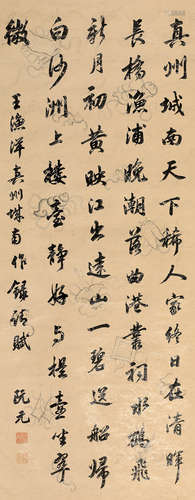 真州城南天下稀人家終日在清暉
長橋漁浦晚潮落曲港叢祠水鶴飛
新月初黃映江出遠山一碧送船歸
白沙洲上樓臺靜好與提壺坐翠
微
王漁洋真州城南作錄
阮元